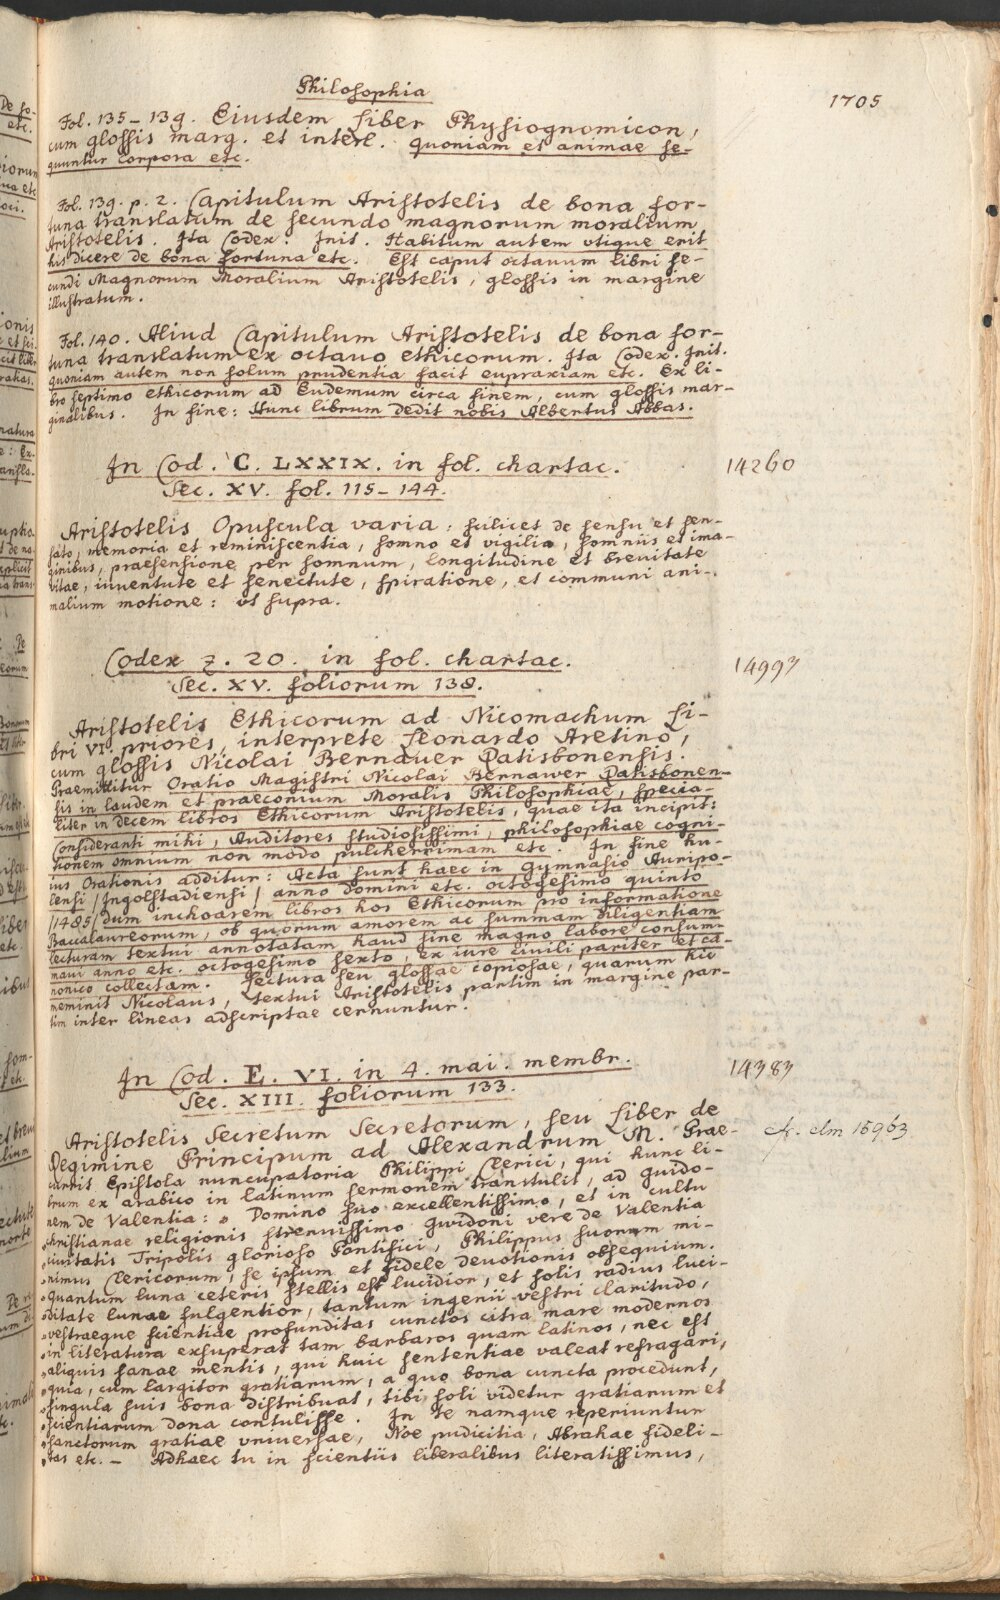 Philosophia
1705
Fol. 135–139. Eiusdem Liber Physiognomicon,
cum glossis marg. et interl. quoniam et animae se-
quuntur corpora etc.
Fol. 139. p. 2. Capitulum Aristotelis de bona for-
tuna translatum de secundo magnorum moralium
Aristotelis. Ita Codex. Init. Habitum autem vtique erit
his dicere de bona fortuna etc. Est caput octauum libri se-
cundi Magnorum Moralium Aristotelis, glossis in margine
illustratum.
Fol. 140. Aliud Capitulum Aristotelis de bona for-
tuna translatum ex octauo ethicorum. Ita Codex. Init.
quoniam autem non solum prudentia facit eupraxiam etc. Ex li-
bro septimo ethicorum ad Eudemum circa finem, cum glossis mar-
ginalibus. In fine: Hunc librum dedit nobis Albertus Abbas.
In Cod. C. LXXIX. in fol. chartac. 14260
Sec. XV. fol. 115–144.
Aristotelis Opuscula varia: scilicet de sensu et sen-
sato, memoria et reminiscentia, somno et vigilia, somniis et ima-
ginibus, praesensione per somnum, longitudine et breuitate
vitae, iuuentute et senectute, spiratione, et communi ani-
malium motione: vt supra.
Codex Z. 20. in fol. chartac. 14993
Sec. XV. foliorum 138.
Aristotelis Ethicorum ad Nicomachum Li-
bri VI. priores, interprete Leonardo Aretino,
cum glossis Nicolai Bernauer Ratisbonensis.
Praemittitur Oratio Magistri Nicolai Bernawer Ratisbonen-
sis in laudem et praeconium Moralis Philosophiae, specia-
liter in decem libros Ethicorum Aristotelis, quae ita incipit:
Consideranti mihi, Auditores studiosissimi, philosophiae cogni-
tionem omnium non modo pulcherrimam etc. In fine hu-
ius Orationis additur: Acta sunt haec in Gymnasio Auripo-
lensi /Ingolstadiensi/ anno Domini etc. octogesimo quinto
/1485/ dum inchoarem libros hos Ethicorum pro informatione
Baccalaureorum, ob quorum amorem ac summam diligentiam
lecturam textui annotatam haud sine magno labore consum-
maui anno etc. octogesimo sexto, ex iure ciuili pariter et ca-
nonico collectam. Lectura seu glossae copiosae, quarum hic
meminit Nicolaus, textui Aristotelis partim in margine par-
tim inter lineas adscriptae cernuntur.
In Cod. E. VI. in 4. mai. membr. 14383
Sec. XIII. foliorum 133.
Aristotelis Secretum Secretorum, seu Liber de
cfr. clm 15963
Regimine Principum ad Alexandrum M. Prae-
currit Epistola nuncupatoria Philippi Clerici, qui hunc li-
brum ex arabico in latinum sermonem transtulit, ad Guido-
nem de Valentia: „Domino suo excellentissimo, et in cultu
„christianae religionis strenuissimo Gwidoni vere de Valentia
„ciuitatis Tripolis glorioso Pontifici, Philippus suorum mi-
„nimus Clericorum, se ipsum et fidele deuotionis obsequium.
„quantum luna ceteris stellis est lucidior, et solis radius luci-
„ditate lunae fulgentior, tantum ingenii vestri claritudo,
„vestraeque scientiae profunditas cunctos citra mare modernos
„in literatura exsuperat tam barbaros quam latinos, nec est
„aliquis sanae mentis, qui huic sententiae valeat refragari,
„quia, cum largitor gratiarum, a quo bona cuncta procedunt,
„singula suis bona distribuat, tibi soli videtur gratiarum et
„scientiarum dona contulisse. In te namque reperiuntur
„sanctorum gratiae vniuersae, Noe pudicitia, Abrahae fideli-
„tas etc. – Adhaec tu in scientiis liberalibus literatissimus,